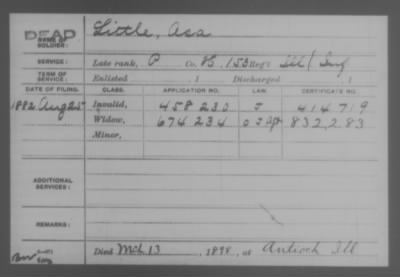 DEAD
NAME OF SOLDIER: Little, Asa
SERVICE: Late rank, P Co. H, 153 Reg't Ill Inf
TERM OF SERVICE: Enlisted , 1 Discharged , 1
DATE OF FILING. CLASS. APPLICATION NO. LAW. CERTIFICATE NO.
1882 Aug 25 Invalid, 458 230 J 414 719
Widow, 674 234 832,283
Minor,
ADDITIONAL SERVICES:
REMARKS:
Died Mch 13, 1898, at Antioch Ill